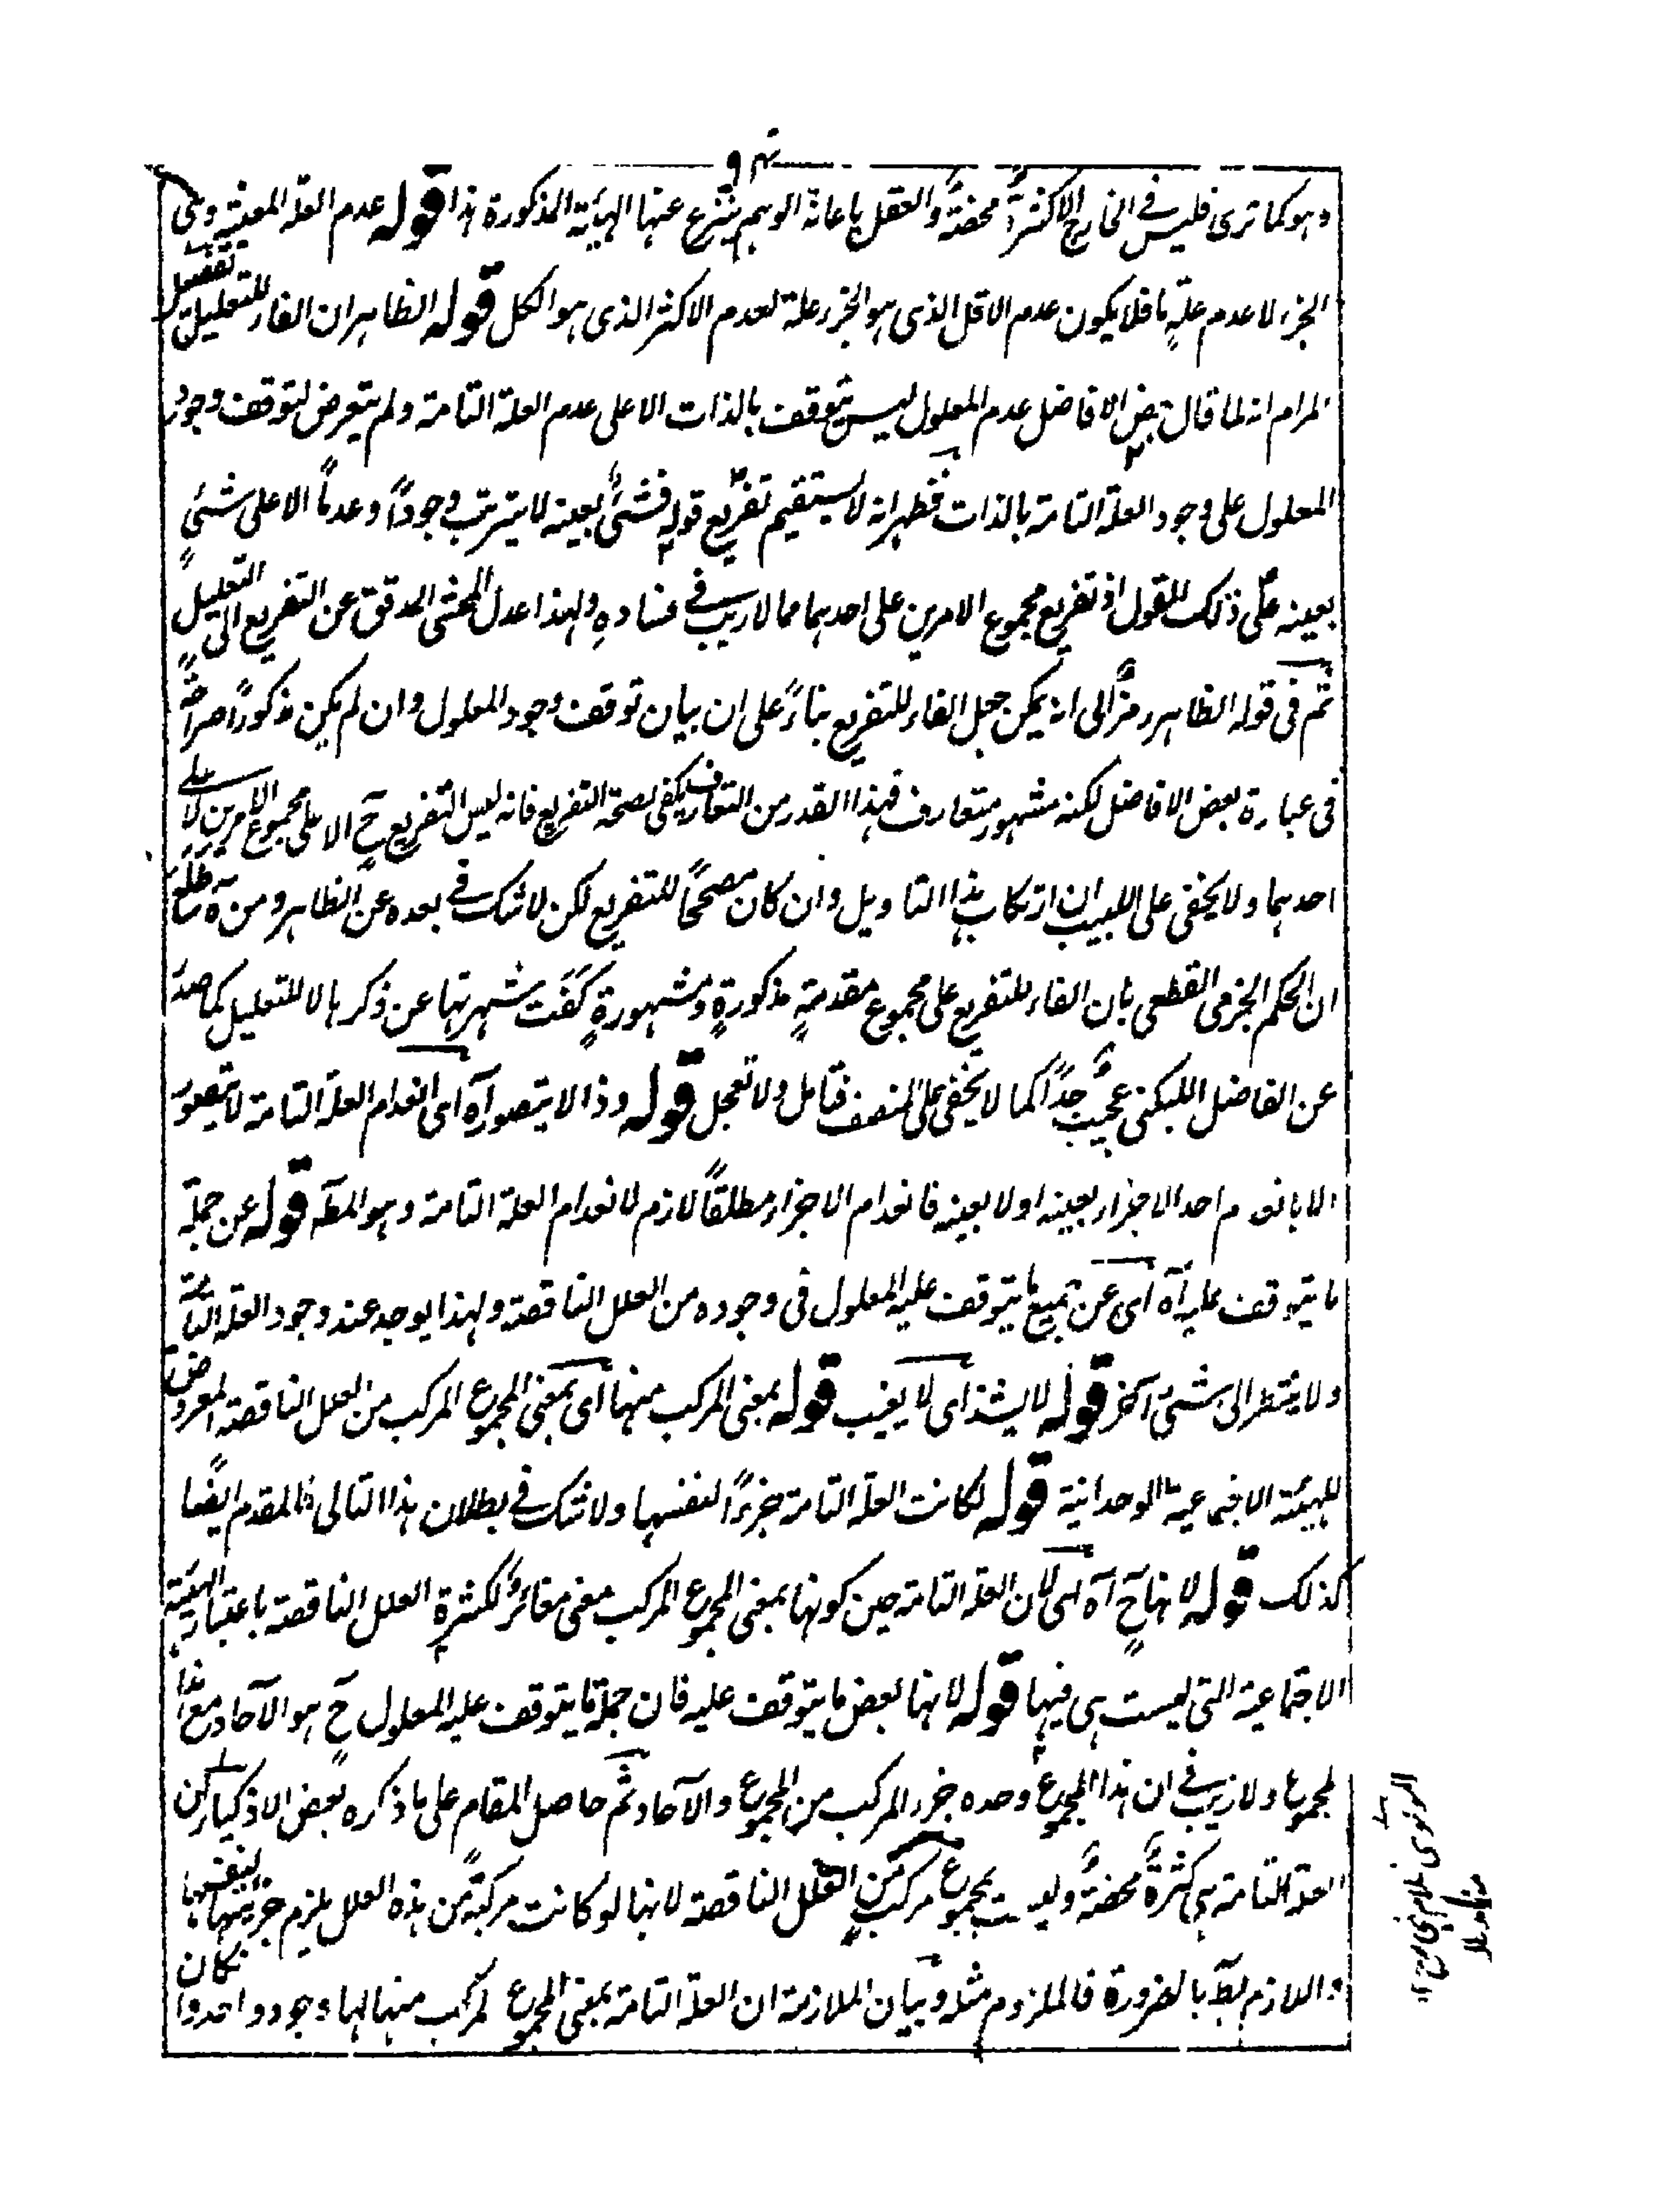 ٩٣
وهو كما ترى فليس في الخارج الا كثرة محضة والعقل باعانة الوهم ينتزع عنها الهيأة المذكورة هذا قوله عدم العلة المعينة وهي
الجزء لا عدم علة ما فلا يكون عدم الاقل الذى هو الجزء علة لعدم الاكثر الذى هو الكل قوله الظاهر ان الفاء للتعليل تفصيل
المرام انه لما قال بعض الافاضل عدم المعلول ليس يتوقف بالذات الا على عدم العلة التامة ولم يتعرض لتوقف وجود
المعلول على وجود العلة التامة بالذات فظهر انه لا يستقيم تفريع قوله فشئ بعينه لا يترتب وجوداً وعدماً الا على شئ
بعينه على ذلك القول اذ تفريع مجموع الامرين على احدهما مما لا ريب فى فساده ولهذا عدل المحشى المدقق عن التفريع الى التعليل
ثم فى قوله الظاهر رمز الى انه يمكن جعل الفاء للتفريع بناءً على ان بيان توقف وجود المعلول وان لم يكن مذكوراً صراحةً
فى عبارة بعض الافاضل لكنه مشهور متعارف فهذا القدر من التعارف يكفى لصحة التفريع فانه ليس التفريع ح الا على مجموع الامرين لا على
احدهما ولا يخفى على اللبيب ان ارتكاب هذا التاويل وان كان مصححاً للتفريع لكن لا شك فى بعده عن الظاهر ومن ههنا ظهر
ان الحكم الجزمى القطعى بان الفاء للتفريع على مجموع مقدمة مذكورةٍ ومشهورةٍ كَفَت شهرتها عن ذكرها لا للتعليل كما صدر
عن الفاضل اللبكنى عجيب جداً كما لا يخفى على المنصف فتامل ولا تعجل قوله وذا لا يتصور آه اى انعدام العلة التامة لا يتصور
الا بانعدام احد الاجزاء بعينه او لا بعينه فانعدام الاجزاء مطلقاً لازم لانعدام العلة التامة وهو المط قوله عن جملة
ما يتوقف عليه آه اى عن جميع ما يتوقف عليه المعلول فى وجوده من العلل الناقصة ولهذا يوجد عند وجود العلة التامة
ولا ينتظر الى شئ آخر قوله لا يشذ اى لا يغيب قوله بمعنى المركب منها اى بمعنى المجموع المركب من العلل الناقصة المعروضة
للهيئة الاجتماعية الوحدانية قوله لكانت العلة التامة جزءاً لنفسها ولا شك فى بطلان هذا التالى فالمقدم ايضًا
كذلك قوله لانها ح آه اى لان العلة التامة حين كونها بمعنى المجموع المركب معنى مغائر لكثرة العلل الناقصة باعتبار الهيئة
الاجتماعية التى ليست هى فيها قوله لانها بعض ما يتوقف عليه فان جملة ما يتوقف عليه المعلول ح هو الآحاد مع هذا
المجموع ولا ريب فى ان هذا المجموع وحده جزء المركب من المجموع والآحاد ثم حاصل المقام على ما ذكره بعض الاذكياء ان
العلة التامة هى كثرة محضة وليست بمجموع مركب من العلل الناقصة لانها لو كانت مركبةً من هذه العلل يلزم جزئيتها لنفسها
واللازم بط بالضرورة فالملزوم مثله وبيان الملازمة ان العلة التامة بمعنى المجموع المركب منها لها وجود واحد وكان